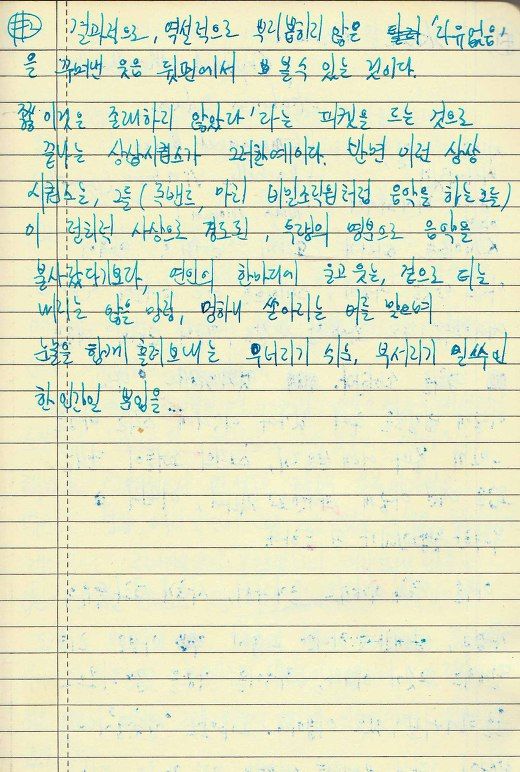 #2 결과적으로, 역설적으로 부리봅하지 않은 '자유없음'
을 꾸며낸 웃음 뒷편에서 볼 수 있는 것이다.
'이것은 존재하지 않았다'라는 피켓을 드는 것으로
끝나는 상상시컨스가 그러한예이다. 반면 이런 상상
시컨스는, 그들(로배르, 마리 비밀조직원처럼 음악을 하는 그들)
이 정치적 사상으로 경도된, 투쟁의 명분으로 음악을
불사랐다기보다, 연인의 한마디에 울고 웃는, 겉으로 티는
내지는 않을 망정, 멍하니 쏟아지는 비를 맞으며
눈물을 함께 흘려보내는 부서지기 쉬운, 부서지기 일쑤인
한 인간일 뿐임을...